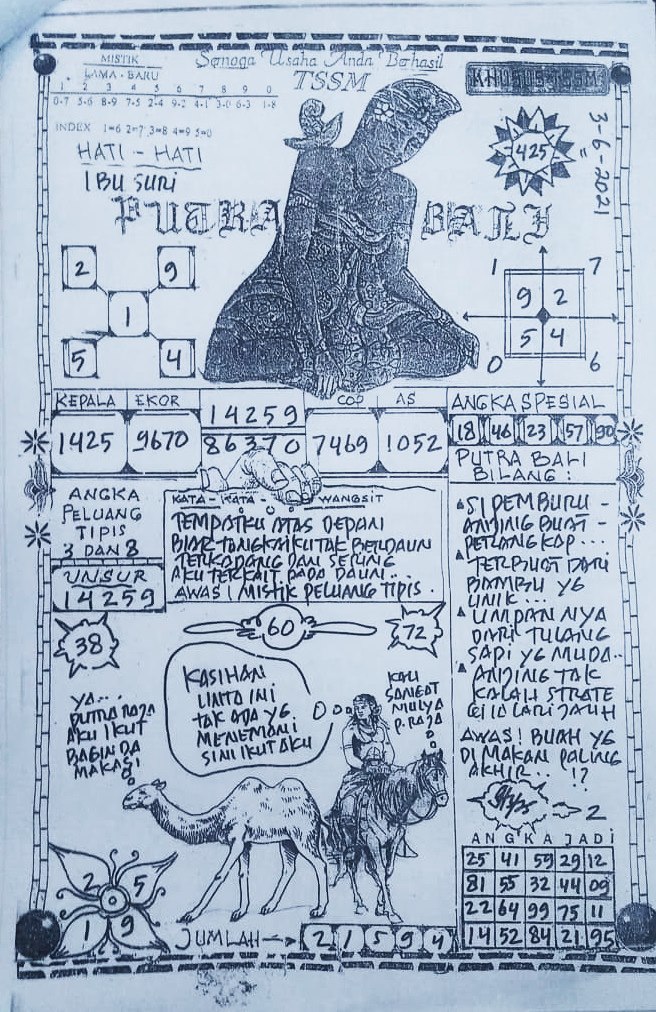 MISTIK
LAMA - BARU
Semoga Usaha Anda Berhasil
TSSM
KHUSUS TSSM
1 2 3 4 5 6 7 8 9 0
0-7 5-6 8-9 7-5 2-4 9-2 4-1 3-0 6-3 1-8
INDEX 1=6 2=7 3=8 4=9 5=0
HATI - HATI
IBU SURI
425
3-6-2021
PUTRA BALI
2 9
1
5 4
1 7
9 2
5 4
0 6
KEPALA EKOR COP AS
1425 9670 14259 7469 1052
86370
ANGKA SPESIAL
18 46 23 57 90
ANGKA
PELUANG
TIPIS
3 DAN 8
UNSUR
14259
KATA - KATA - WANGSIT
TEMPATKU ATAS DEPAN
BIAR TANGKAIKU TAK BERDAUN
TERKADANG DAN SERING
AKU TERKAIT PADA DAUN...
AWAS! MISTIK PELUANG TIPIS.
PUTRA BALI
BILANG :
SI PEMBURU -
ANJING BUAT -
PERANGKAP...
TERBUAT DARI
BAMBU YG
UNIK...
UMPAN NYA
DARI TULANG
SAPI YG MUDA..
ANJING TAK
KALAH STRATE
GI IA LARI JAUH
AWAS! BUAH YG
DI MAKAN PALING
AKHIR.. !?
38
60
72
YA...
PUTRA RAJA
AKU IKUT
BAGINDA
MAKASI
KASIHAN
UNTA INI
TAK ADA YG
MENEMANI
SINI IKUT AKU
KAU
SANGAT
MULYA
P. RAJA
2
ANGKA JADI
25 41 59 29 12
81 55 32 44 09
22 64 99 75 11
14 52 84 21 95
2 5
1 9
JUMLAH → 21594